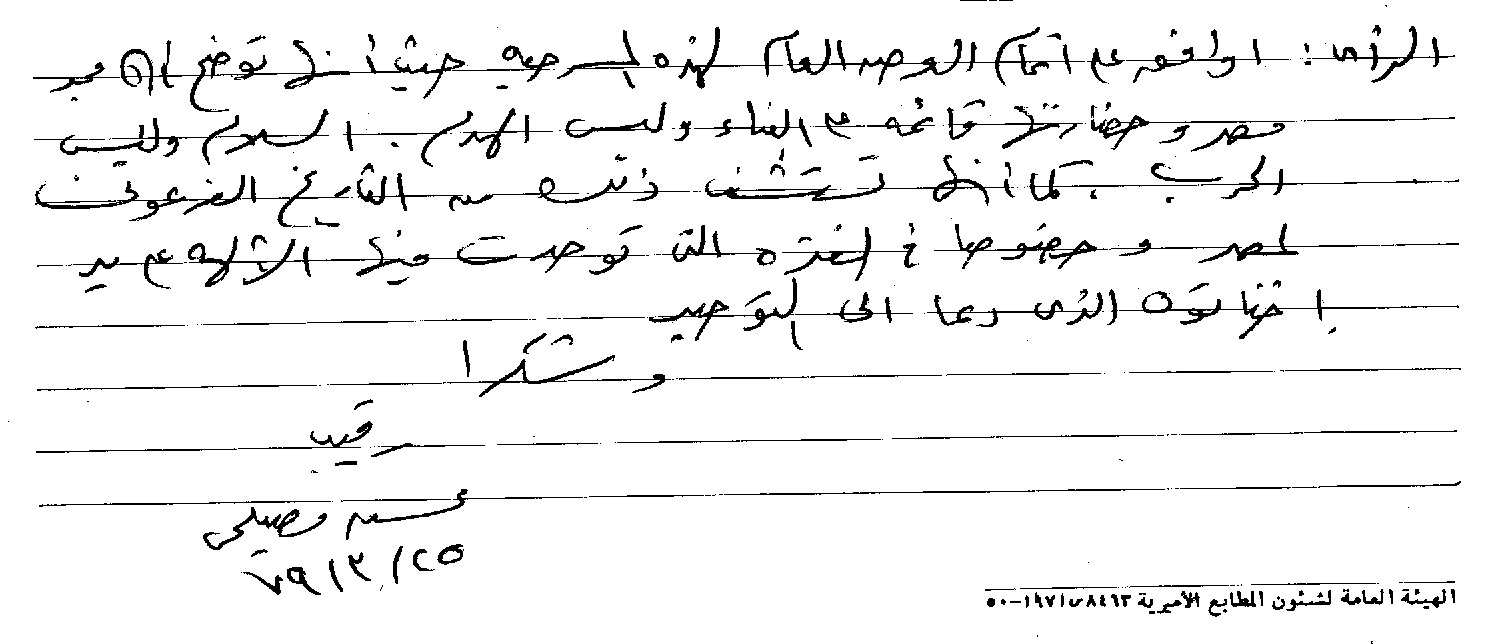 الرأى : أوافق على اتمام العرض العام لهذه المسرحية حيث أنها توضح أن مجد
مصر وحضارتها قائمه على البناء وليس الهدم . السلام وليس
الحرب . كما أنها تستشف ذلك من التاريخ الفرعونى
لمصر وخصوصا فى الفتره التى توحدت فيها الآلهه على يد
إخناتون الذى دعا الى التوحيد
وشكرا
رقيب
مصيلحى
٢٥/٣/٧٩
الهيئة العامة لشئون المطابع الأميرية ٨٤٦٣س١٩٧١-٥٠